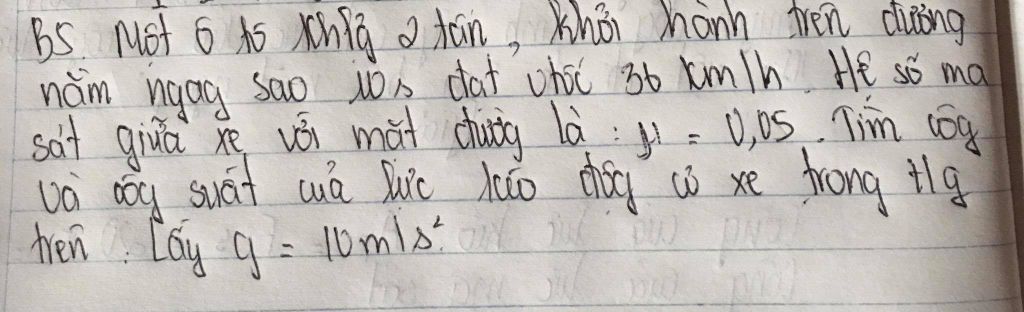 B5. Một ô tô khlg 2 tấn, khởi hành trên đường
nằm ngag sao 10s đạt vtốc 36 km/h. Hệ số ma
sát giữa xe với mặt đườg là : μ = 0,05. Tìm côg
và côg suất cuả lực kéo độg cơ xe trong t/g
trên. Lấy g = 10m/s²